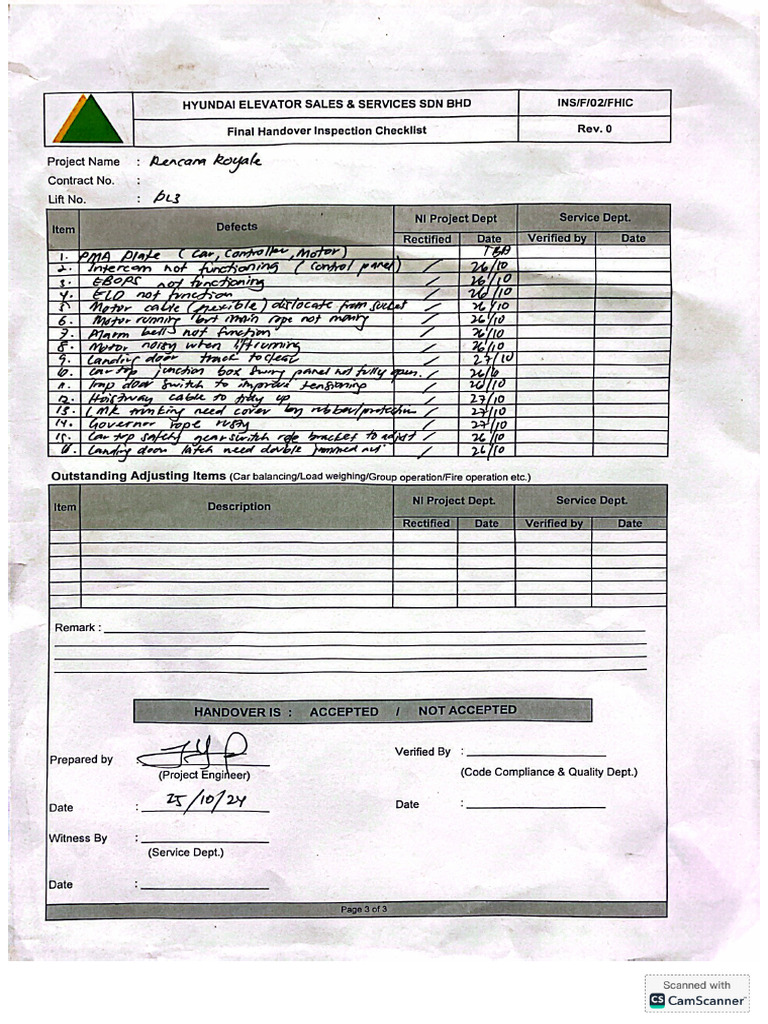 HYUNDAI ELEVATOR SALES & SERVICES SDN BHD
INS/F/02/FHIC
Final Handover Inspection Checklist
Rev. 0
Project Name : Rencana Royale
Contract No. :
Lift No. : DL3
Item Defects NI Project Dept Service Dept.
Rectified Date Verified by Date
1. PMA Plate (Car, Controller, Motor) TBA
2. Intercom not functioning (Control panel) / 26/10
3. EBOPS not functioning / 26/10
4. ELD not function / 26/10
5 Motor cable (flexible) dislocate from socket / 26/10
6. Motor running but main rope not moving / 26/10
7. Alarm bell not function / 26/10
8. Motor noisy when lift running / 26/10
9. Landing door track to clear / 27/10
10. Car top junction box swing panel not fully open. / 26/
11. Trap door switch to improve tensioning / 26/10
12. Hoistway cable to tidy up / 27/10
13. LMK trunking need cover by rubber/protection / 27/10
14. Governor rope rusty / 27/10
15. Car top safety gear switch rope bracket to adjust / 26/10
16. Landing door latch need double nut / 26/10
Outstanding Adjusting Items (Car balancing/Load weighing/Group operation/Fire operation etc.)
Item Description NI Project Dept. Service Dept.
Rectified Date Verified by Date
Remark :
HANDOVER IS : ACCEPTED / NOT ACCEPTED
Prepared by
Verified By :
(Project Engineer)
(Code Compliance & Quality Dept.)
Date : 25/10/24
Date :
Witness By :
(Service Dept.)
Date :
Page 3 of 3
Scanned with
CS CamScanner